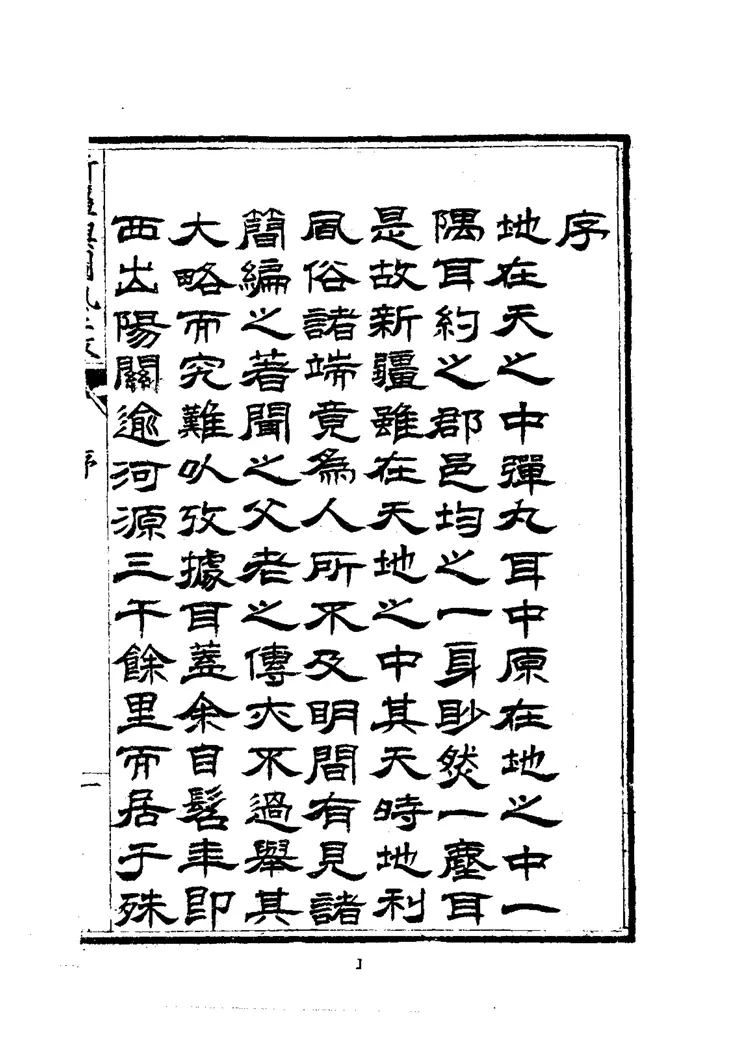 序
地在天之中彈丸耳中原在地之中一
隅耳約之郡邑均之一身眇然一塵耳
是故新疆雖在天地之中其天時地利
風俗諸端竟爲人所不及明間有見諸
簡編之著聞之父老之傳亦不過舉其
大略而究難以攷據耳蓋余自髫年即
西出陽關逾河源三千餘里而居于殊
序
一
1